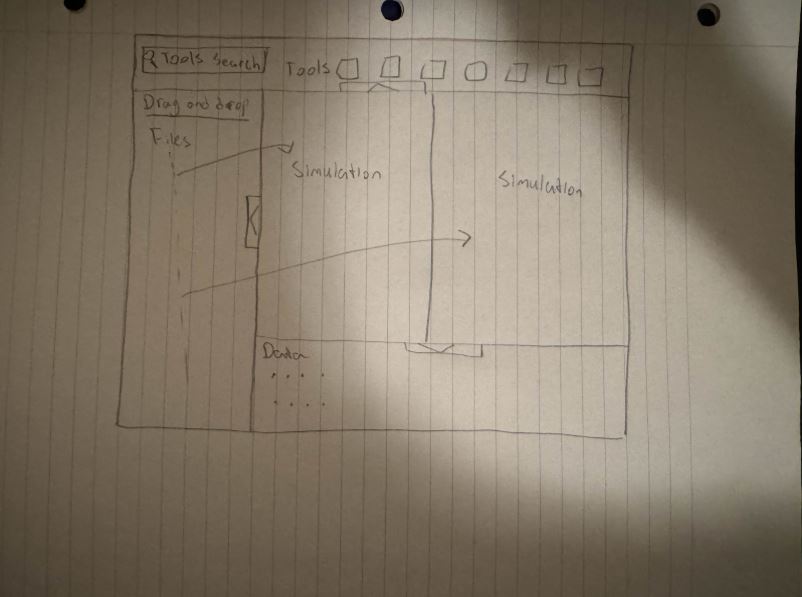 Tools Search
Tools
Drag and drop
Files
Simulation
Simulation
Data